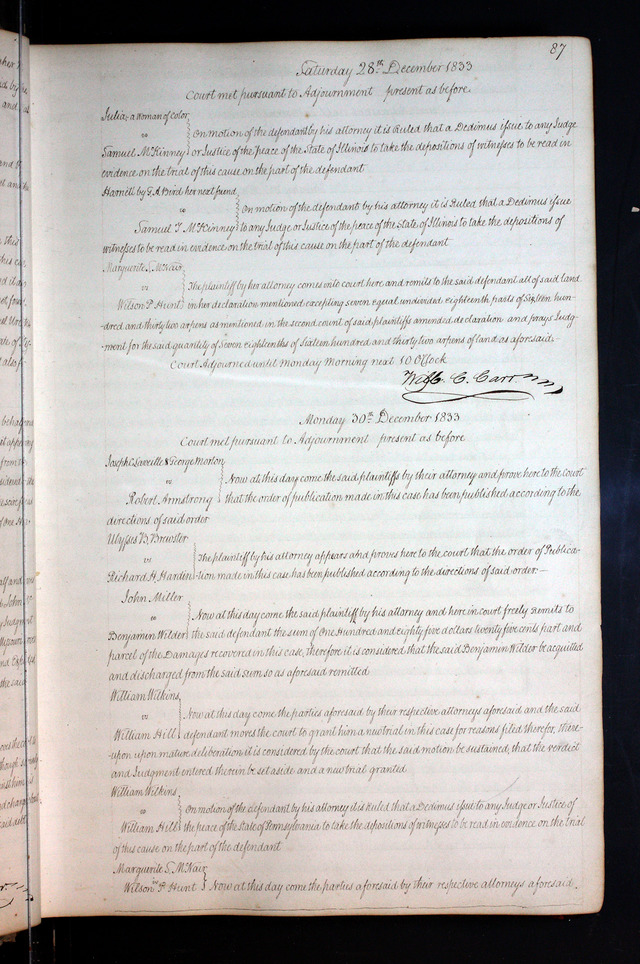 87
Saturday 28th December 1833
Court met pursuant to Adjournment present as before.
Julia, a woman of color
vs
On motion of the defendant by his attorney it is Ruled that a Dedimus issue to any Judge
Samuel McKinney or Justice of the peace of the State of Illinois to take the depositions of witnesses to be read in
evidence on the trial of this cause on the part of the defendant
by G. A. Bird her next friend
vs
On motion of the defendant by his attorney it is Ruled that a Dedimus issue
Samuel T. McKinney to any Judge or Justice of the peace of the State of Illinois to take the depositions of
witnesses to be read in evidence on the trial of this cause on the part of the defendant
Marguerite S. McNair
vs
The plaintiff by her attorney comes into court here and remits to the said defendant all of said land
Wilson P. Hunt in her declaration mentioned excepting seven equal undivided eighteenth parts of Sixteen hun-
dred and thirty two arpens as mentioned in the second count of said plaintiffs amended declaration and prays Judg-
-ment for the said quantity of Seven eighteenths of Sixteen hundred and thirty two arpens of land as aforesaid.-
Court Adjourned until Monday Morning next 10 OClock
C. Carr
Monday 30th December 1833
Court met pursuant to Adjournment present as before
Joseph C. Laveille & George Morton
vs
Now at this day come the said plaintiffs by their attorney and prove here to the court
Robert Armstrong that the order of publication made in this case has been published according to the
directions of said order
Ulysses B. Brewster
vs
The plaintiff by his attorney appears and proves here to the court that the order of Publica-
Richard H. Hardin -tion made in this case has been published according to the directions of said order.-
John Miller
vs
Now at this day come the said plaintiff by his attorney and here in court freely Remits to
Benjamin Wilder the said defendant the sum of One Hundred and eighty five dollars twenty five cents part and
parcel of the Damages recovered in this case, therefore it is considered that the said Benjamin Wilder be acquitted
and discharged from the said sum so as aforesaid remitted
William Wilkins
vs
Now at this day come the parties aforesaid by their respective attorneys aforesaid and the said
William Hill defendant moves the court to grant him a new trial in this case for reasons filed therefor, there-
-upon upon mature deliberation it is considered by the court that the said motion be sustained, that the verdict
and Judgment entered therein be set aside and a new trial granted
William Wilkins
vs
On motion of the defendant by his attorney it is Ruled that a Dedimus issue to any Judge or Justice of
William Hill the peace of the State of Pennsylvania to take the depositions of witnesses to be read in evidence on the trial
of this cause on the part of the defendant
Marguerite S. McNair
vs
Wilson P. Hunt Now at this day come the parties aforesaid by their respective attorneys aforesaid